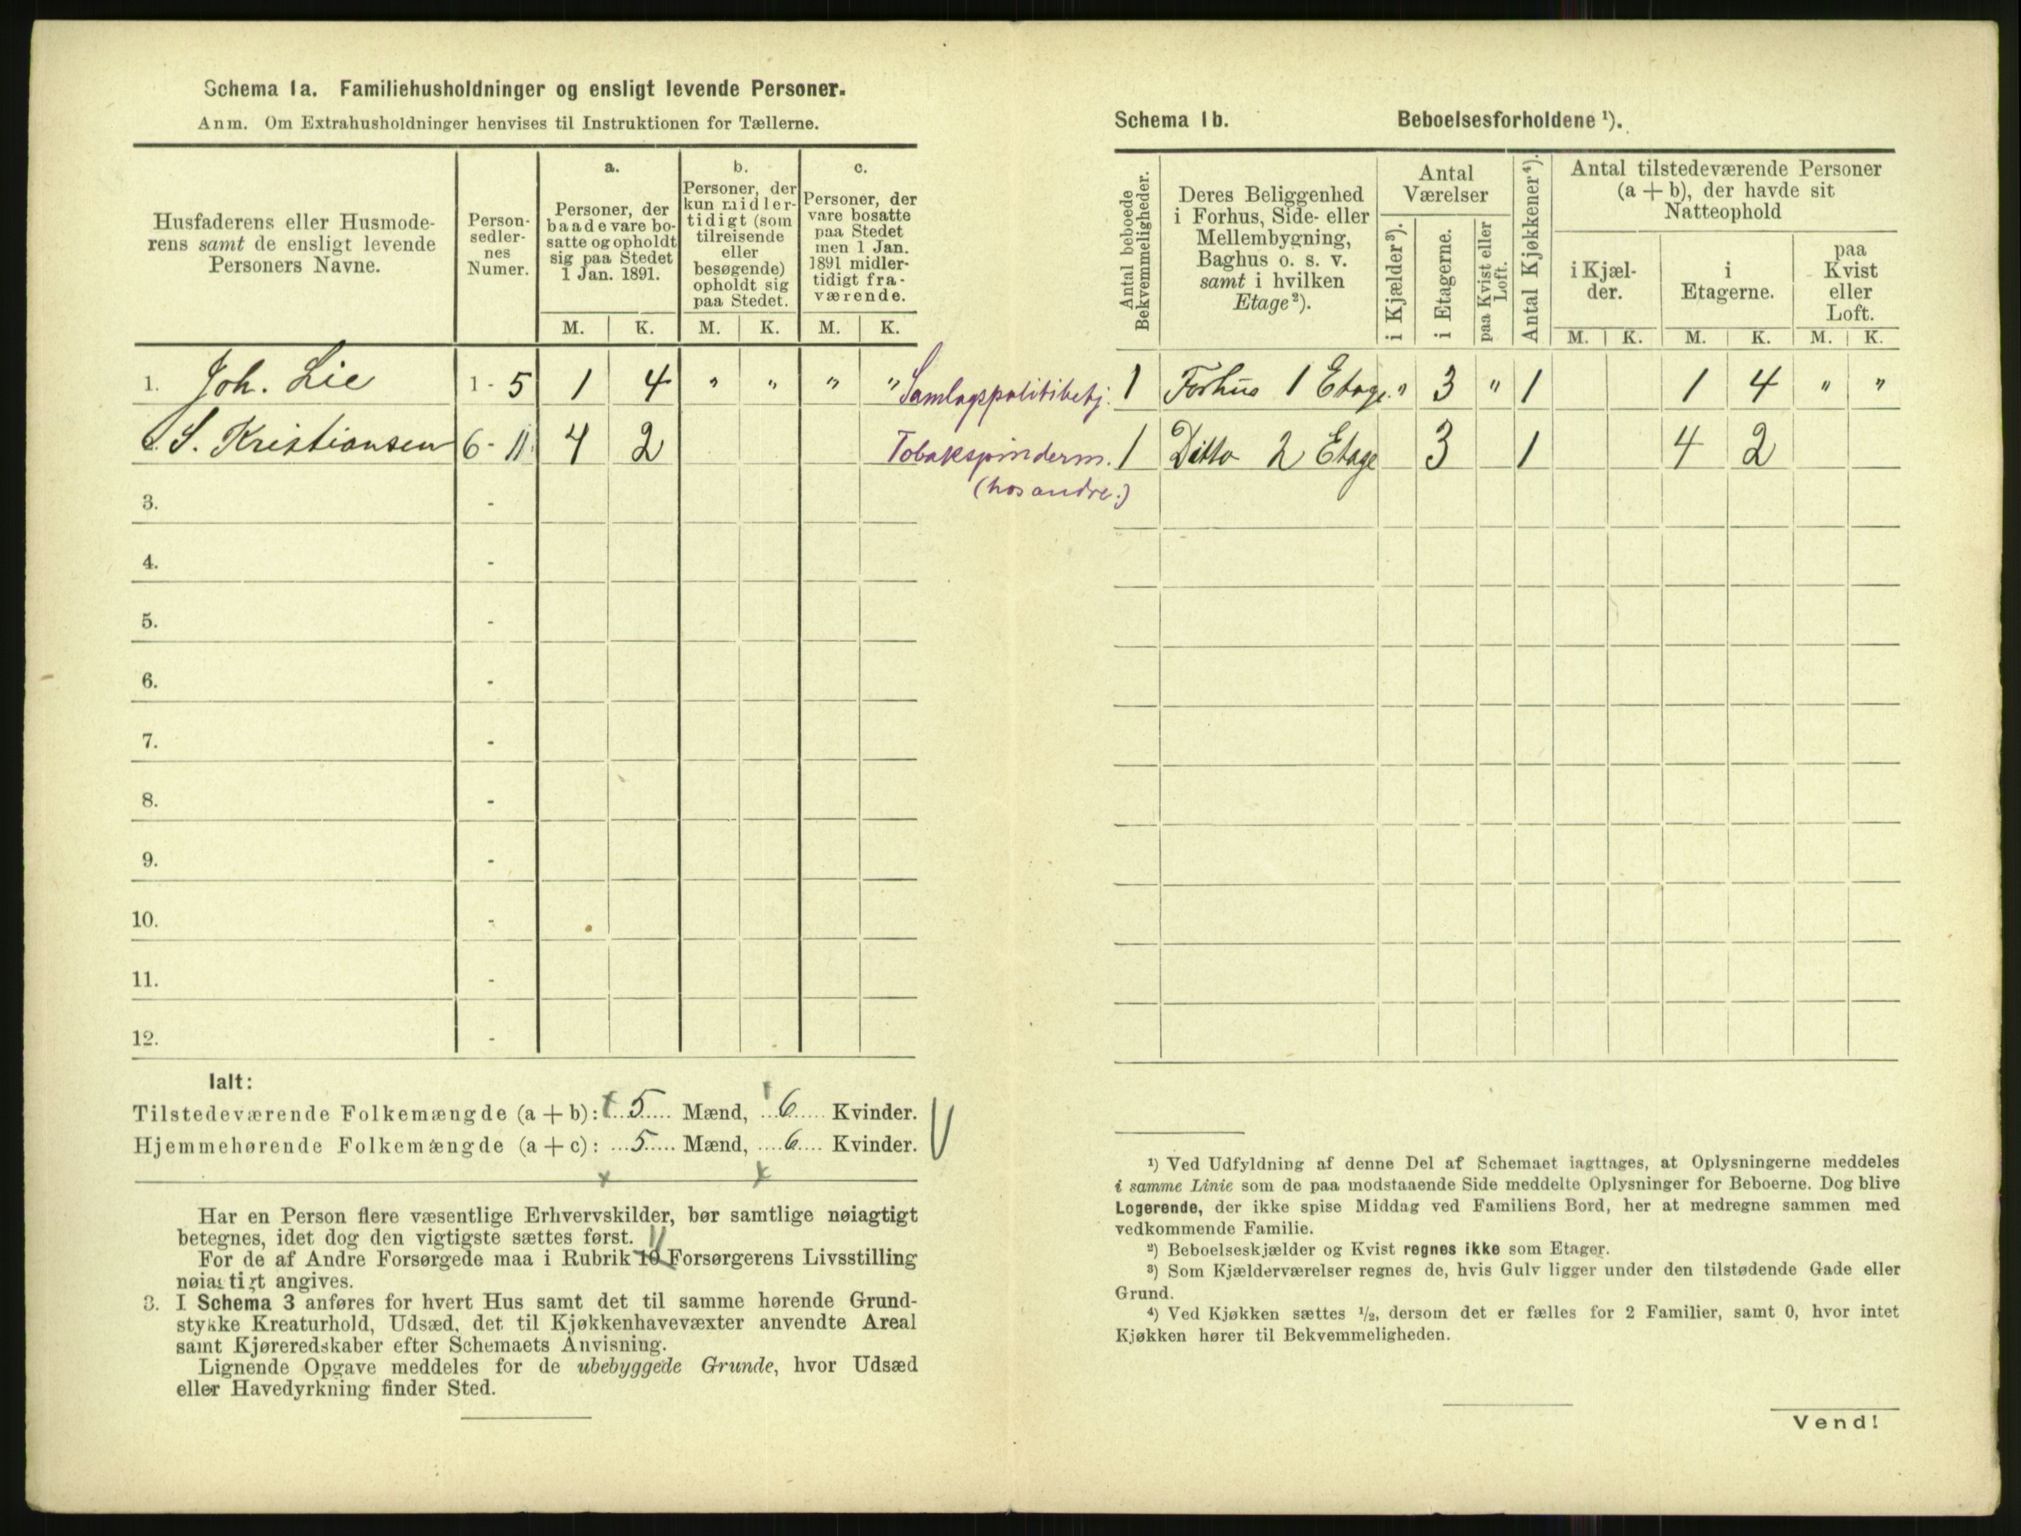 Schema 1a. Familiehusholdninger og ensligt levende Personer.
Anm. Om Extrahusholdninger henvises til Instruktionen for Tællerne.
Husfaderens eller Husmode-
rens samt de ensligt levende
Personers Navne.
Person-
sedler-
nes
Numer.
a.
Personer, der
baade vare bo-
satte og opholdt
sig paa Stedet
1 Jan. 1891.
b.
Personer, der
kun midler-
tidigt (som
tilreisende
eller
besøgende)
opholdt sig
paa Stedet.
c.
Personer, der
vare bosatte
paa Stedet
men 1 Jan.
1891 midler-
tidigt fra-
værende.
M. K. M. K. M. K.
1. Joh. Lie 1 - 5 1 4 " " " "
2. S. Kristiansen 6 - 11 4 2
3. -
4. -
5. -
6. -
7. -
8. -
9. -
10. -
11. -
12. -
Ialt:
Tilstedeværende Folkemængde (a + b): 5 Mænd, 6 Kvinder.
Hjemmehørende Folkemængde (a + c): 5 Mænd, 6 Kvinder.
Har en Person flere væsentlige Erhvervskilder, bør samtlige nøiagtigt
betegnes, idet dog den vigtigste sættes først.
11
For de af Andre Forsørgede maa i Rubrik 10 Forsørgerens Livsstilling
nøiagtigt angives.
3. I Schema 3 anføres for hvert Hus samt det til samme hørende Grund-
stykke Kreaturhold, Udsæd, det til Kjøkkenhavevæxter anvendte Areal
samt Kjøreredskaber efter Schemaets Anvisning.
Lignende Opgave meddeles for de ubebyggede Grunde, hvor Udsæd
eller Havedyrkning finder Sted.
Samlagspolitibetj.
Tobakspinderm.
(hos andre.)
Schema 1b. Beboelsesforholdene ¹).
Antal beboede
Bekvemmeligheder.
Deres Beliggenhed
i Forhus, Side- eller
Mellembygning,
Baghus o. s. v.
samt i hvilken
Etage²).
Antal
Værelser
i Kjælder³).
i Etagerne.
paa Kvist eller
Loft.
Antal Kjøkkener⁴).
Antal tilstedeværende Personer
(a + b), der havde sit
Natteophold
i Kjæl-
der.
i
Etagerne.
paa
Kvist
eller
Loft.
M. K. M. K. M. K.
1 Forhus 1 Etage " 3 " 1 1 4 " "
1 Ditto 2 Etage 3 1 4 2
¹) Ved Udfyldning af denne Del af Schemaet iagttages, at Oplysningerne meddeles
i samme Linie som de paa modstaaende Side meddelte Oplysninger for Beboerne. Dog blive
Logerende, der ikke spise Middag ved Familiens Bord, her at medregne sammen med
vedkommende Familie.
²) Beboelseskjælder og Kvist regnes ikke som Etager.
³) Som Kjælderværelser regnes de, hvis Gulv ligger under den tilstødende Gade eller
Grund.
⁴) Ved Kjøkken sættes ½, dersom det er fælles for 2 Familier, samt 0, hvor intet
Kjøkken hører til Bekvemmeligheden.
Vend!